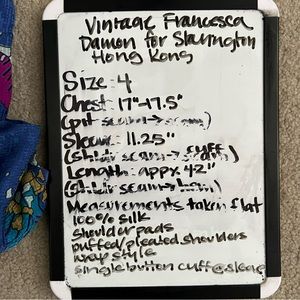 Vintage Francesca
Damon for Starington
Hong Kong
Size: 4
Chest: 17"-17.5"
(pit seam -> seam)
Sleeve: 11.25"
(shldr seam -> cuff)
Length: appx. 42"
(shldr seam -> hem)
Measurements taken flat
100% silk
shoulder pads
puffed/pleated shoulders
wrap style
single button cuff